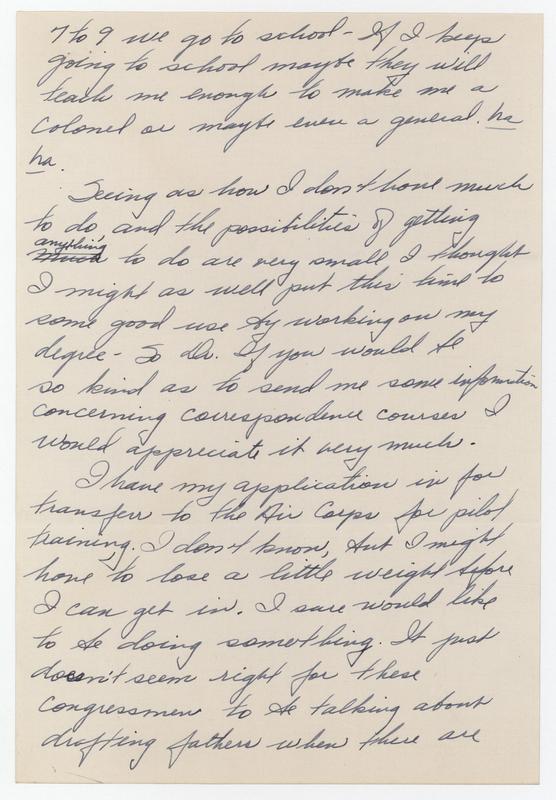 7 to 9 we go to school - If I keep
going to school maybe they will
teach me enough to make me a
Colonel or maybe even a general. ha
ha.
Seeing as how I don't have much
to do and the possibilities of getting
anything
much to do are very small I thought
I might as well put this time to
some good use by working on my
degree - So Dr. If you would be
so kind as to send me some information
concerning correspondence courses I
would appreciate it very much.
I have my application in for
transferr to the Air Corps for pilot
training. I don't know, but I might
have to lose a little weight before
I can get in. I sure would like
to be doing something. It just
doesn't seem right for these
Congressmen to be talking about
drafting fathers when there are